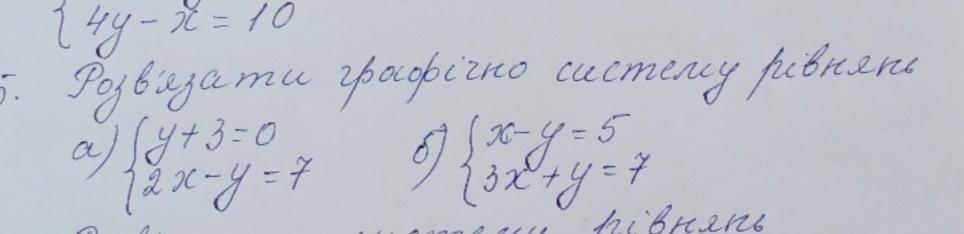 { 4y - x = 10
5. Розв'язати графічно систему рівнянь
а) { y + 3 = 0 б) { x - y = 5
2x - y = 7 3x + y = 7
рівнянь